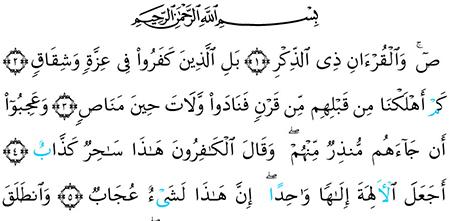 بِسْمِ اللَّهِ الرَّحْمَٰنِ الرَّحِيمِ
صٓ ۚ وَالْقُرْءَانِ ذِى الذِّكْرِ ﴿١﴾ بَلِ الَّذِينَ كَفَرُوا۟ فِى عِزَّةٍ وَشِقَاقٍ ﴿٢﴾
كَمْ أَهْلَكْنَا مِن قَبْلِهِم مِّن قَرْنٍ فَنَادَوا۟ وَّلَاتَ حِينَ مَنَاصٍ ﴿٣﴾ وَعَجِبُوٓا۟
أَن جَآءَهُم مُّنذِرٌ مِّنْهُمْ ۖ وَقَالَ الْكَٰفِرُونَ هَٰذَا سَٰحِرٌ كَذَّابٌ ﴿٤﴾
أَجَعَلَ الْأَلِهَةَ إِلَٰهًا وَٰحِدًا ۖ إِنَّ هَٰذَا لَشَىْءٌ عُجَابٌ ﴿٥﴾ وَانطَلَقَ